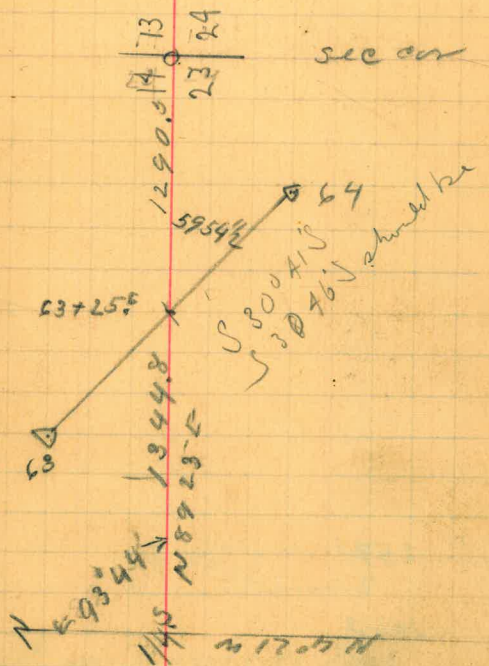 14 13
23 24
sec cor
1290.5
64
5954½
63+25.5
S 30° 41' S
S 30 46' S should be
1344.8
63
N 89 23 E
93°44'
N
1/4 S
N 4° 21 W